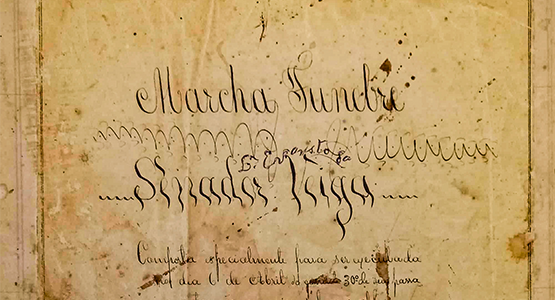 Marcha Funebre
Dr. Evaristo da
Senador Veiga
Composta especialmente para ser executada
no dia 6 de Abril 30º dia